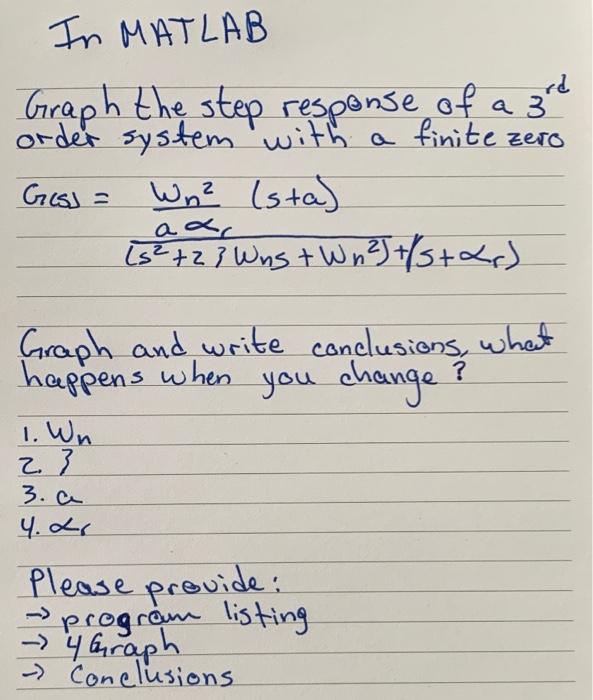 In MATLAB
Graph the step response of a 3rd
order system with a finite zero
G(s) = Wn² (s+a)
a αr
(s²+2ζWns+Wn²)+(s+αr)
Graph and write conclusions, what
happens when you change?
1. Wn
2. ζ
3. a
4. αr
Please provide:
→ program listing
→ 4 Graph
→ Conclusions